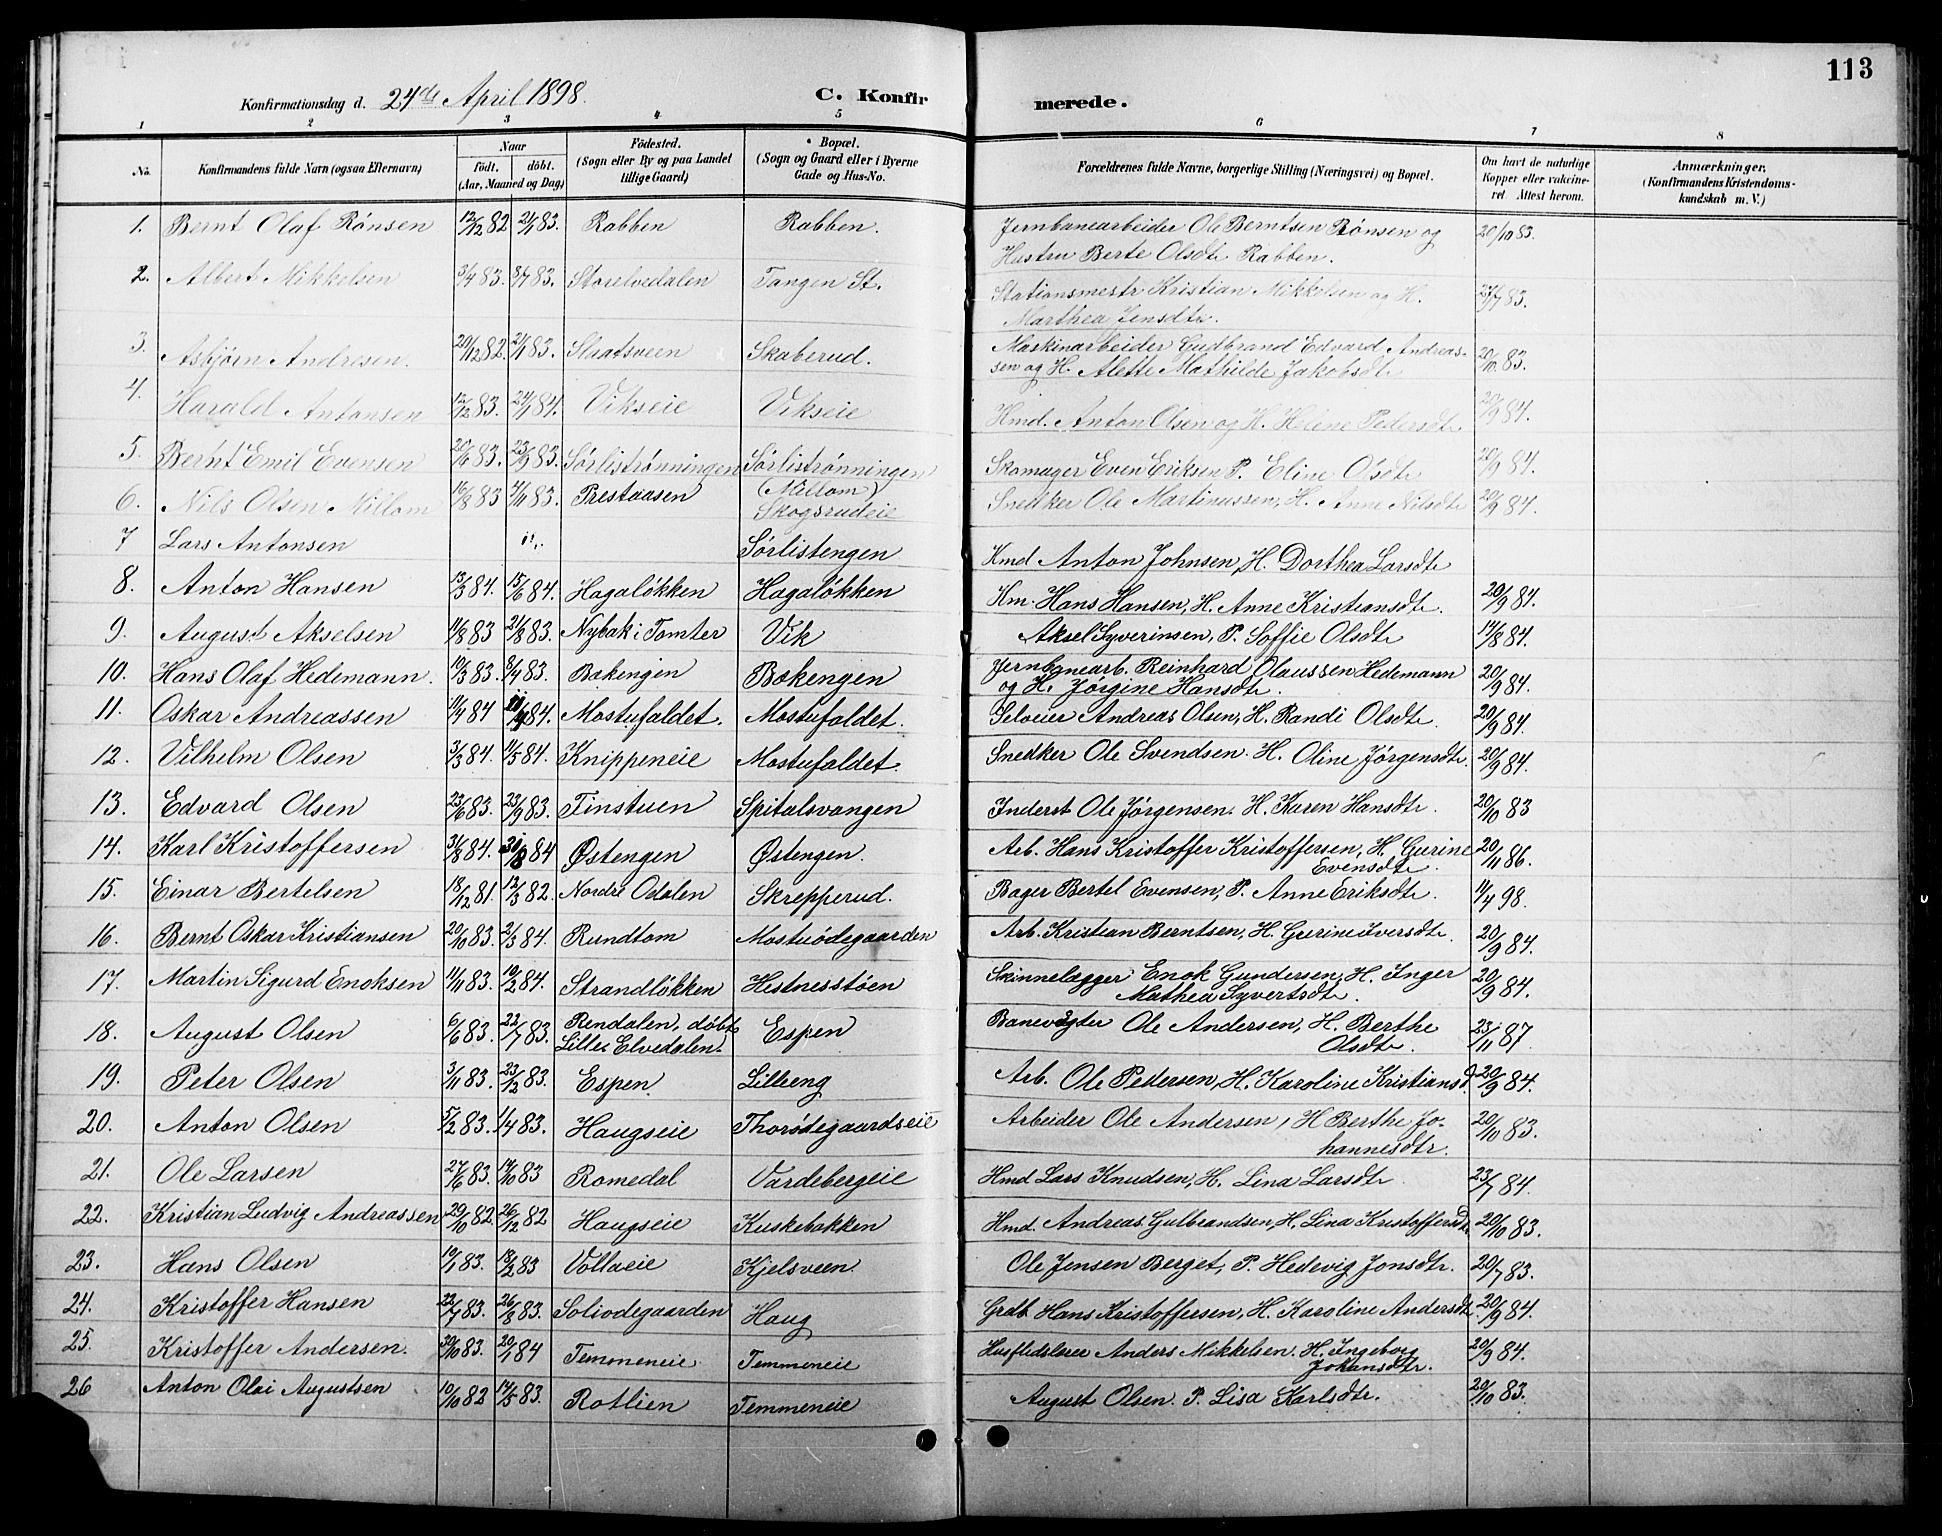 113
Konfirmationsdag d. 24de April 1898. C. Konfirmerede.
1 2 3 4 5 6 7 8
No. Konfirmandens fulde Navn (ogsaa Efternavn) Naar født. døbt. (Aar, Maaned og Dag) Fødested. (Sogn eller By og paa Landet tillige Gaard) Bopæl. (Sogn og Gaard eller i Byerne Gade og Hus-No. Forældrenes fulde Navne, borgerlige Stilling (Næringsvei) og Bopæl. Om havt de naturlige Kopper eller vakcineret Attest herom. Anmærkninger. (Konfirmandens Kristendomskundskab m. V.)
1. Bernt Olaf Rønsen 12/12 82 21/1 83. Rabben Rabben. Jernbanearbeider Ole Berntsen Rønsen og 20/10 83.
Hustru Berte Olsdtr Rabben.
2. Albert Mikkelsen 3/4 83. 8/7 83. Storelvedalen Tangen St. Stationsmestr Kristian Mikkelsen og H. 27/7 83.
Marthea Jensdtr.
3. Asbjørn Andresen. 20/12 82. 21/1 83. Slaatsveen Skaberud. Maskinarbeider Gudbrand Edvard Andreas- 20/10 83.
sen og H. Alette Mathilde Jakobsdtr
4. Harald Antonsen 12/12 83. 24/1 84. Vikseie Vikseie Hmd. Anton Olsen og H. Helene Pedersdtr 20/9 84.
5. Bernt Emil Evensen 20/6 83. 23/9 83. Sørlistrønningen Sørlistrønningen Skomager Even Eriksen P. Eline Olsdtr 20/9 84.
6. Nils Olsen Millom 16/8 83 4/11 83. Prestaasen (Millom) Skogsrudeie Snedker Ole Martinussen, H. Anne Nilsdtr 20/9 84.
7 Lars Antonsen Sørlistengen Kmd Anton Johnsen, H. Dorthea Larsdtr
8. Anton Hansen 13/3 84. 15/6 84. Hagaløkken Hagaløkken Km. Hans Hansen, H. Anne Kristiansdtr. 20/9 84.
9. August Akselsen 11/8 83 21/8 83. Nybak i Tomter Vik Aksel Syverinsen, P. Soffie Olsdtr 14/8 84.
10. Hans Olaf Hedemann. 10/3 83. 8/4 83. Bokengen Bokengen Jernbanearb. Reinhard Olaussen Hedemann 20/9 84.
og H. Jørgine Hansdtr.
11. Oskar Andreassen 11/4 84 84. Mostufaldet. Mostufaldet. Selveier Andreas Olsen, H. Randi Olsdtr. 20/9 84.
12. Vilhelm Olsen 3/3 84. 11/5 84. Knippeneie Mostufaldet. Snedker Ole Svendsen. H. Oline Jørgensdtr. 20/9 84.
13. Edvard Olsen 23/6 83. 23/9 83. Tinstuen Spitalsvangen Inderst Ole Jørgensen. H. Karen Hansdtr. 20/10 83
14. Karl Kristoffersen 31/8 84. 84 Østengen Østengen. Arb. Hans Kristoffer Kristoffersen, H. Gurine 20/11 86.
Evensdtr.
15. Einar Bertelsen 18/12 81. 12/3 82. Nordre Odalen Skrepperud. Bager Bertel Evensen, P. Anne Eriksdtr. 11/4 98.
16. Bernt Oskar Kristiansen 20/10 83. 2/3 84. Rundtom Mostuødegaarden Arb. Kristian Berntsen, H. Gurine Iversdtr. 20/9 84.
17. Martin Sigurd Enoksen 11/11 83. 10/2 84. Strandløkken Hestnesstøen Skinnelægger Enok Gundersen, H. Inger 20/9 84.
Mathea Syvertsdtr.
18. August Olsen 6/6 83. 22/7 83. Rendalen, døbt Lille Elvedalen. Espen Banevogter Ole Andersen, H. Berthe 23/11 87.
Olsdtr.
19. Peter Olsen 3/11 83. 23/12 83. Espen. Lilleng Arb. Ole Pedersen, H. Karoline Kristiansd. 20/9 84.
20. Anton Olsen 5/2 83. 1/4 83. Haugseie Thorødegaardseie Arbeider Ole Andersen, H Berthe Jo- 20/10 83.
hannesdtr.
21. Ole Larsen 27/6 83. 14/10 83 Romedal Vardebergeie Hmd Lars Knudsen, H. Lina Larsdtr. 23/7 84.
22. Kristian Ludvig Andreassen 29/10 82. 26/12 82 Haugseie Kuskebakken Hmd. Andreas Gulbrandsen, H. Lina Kristoffersdtr 20/10 83.
23. Hans Olsen 19/1 83. 18/2 83 Vollaeie Kjelsveen Ole Jensen Berget, P. Hedevig Jonsdtr. 20/7 83.
24. Kristoffer Hansen 22/7 83. 26/8 83. Soliodegaarden Haug Grdb. Hans Kristoffersen, H. Karoline Andersdtr. 20/9 84.
25. Kristoffer Andersen. 30/10 83. 20/1 84 Temmeneie. Temmeneie Husflidslærer Anders Mikkelsen. H. Ingeborg 20/9 84.
Johansdtr.
26 Anton Olai Augustsen 10/10 82 14/5 83. Rotlien Temmeneie August Olsen. P. Lisa Karlsdtr. 20/10 83.